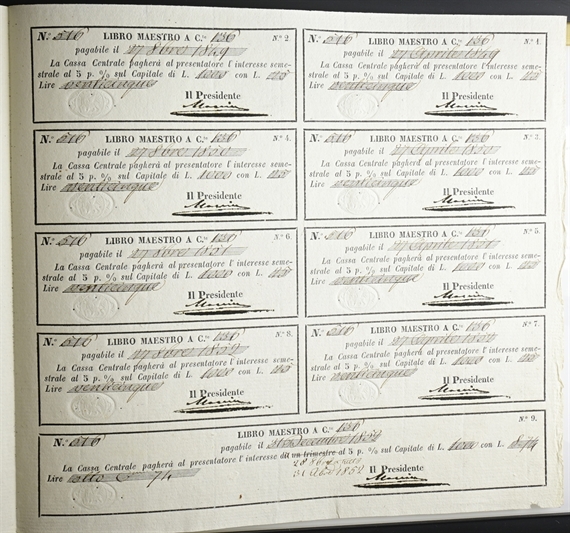 N.° 516 LIBRO MAESTRO A C.te 136 N.° 2.
pagabile il 27 8bre 1849
La Cassa Centrale pagherà al presentatore l'interesse seme-
strale al 5 p. % sul Capitale di L. 1000 con L. 25
Lire venticinque
Il Presidente
N.° 516 LIBRO MAESTRO A C.te 136 N.° 1.
pagabile il 27 Aprile 1849
La Cassa Centrale pagherà al presentatore l'interesse seme-
strale al 5 p. % sul Capitale di L. 1000 con L. 25
Lire venticinque
Il Presidente
N.° 516 LIBRO MAESTRO A C.te 136 N.° 4.
pagabile il 27 8bre 1850
La Cassa Centrale pagherà al presentatore l'interesse seme-
strale al 5 p. % sul Capitale di L. 1000 con L. 25
Lire venticinque
Il Presidente
N.° 516 LIBRO MAESTRO A C.te 136 N.° 3.
pagabile il 27 Aprile 1850
La Cassa Centrale pagherà al presentatore l'interesse seme-
strale al 5 p. % sul Capitale di L. 1000 con L. 25
Lire venticinque
Il Presidente
N.° 516 LIBRO MAESTRO A C.te 136 N.° 6.
pagabile il 27 8bre 1851
La Cassa Centrale pagherà al presentatore l'interesse seme-
strale al 5 p. % sul Capitale di L. 1000 con L. 25
Lire venticinque
Il Presidente
N.° 516 LIBRO MAESTRO A C.te 136 N.° 5.
pagabile il 27 Aprile 1851
La Cassa Centrale pagherà al presentatore l'interesse seme-
strale al 5 p. % sul Capitale di L. 1000 con L. 25
Lire venticinque
Il Presidente
N.° 516 LIBRO MAESTRO A C.te 136 N.° 8.
pagabile il 27 8bre 1852
La Cassa Centrale pagherà al presentatore l'interesse seme-
strale al 5 p. % sul Capitale di L. 1000 con L. 25
Lire venticinque
Il Presidente
N.° 516 LIBRO MAESTRO A C.te 136 N.° 7.
pagabile il 27 Aprile 1852
La Cassa Centrale pagherà al presentatore l'interesse seme-
strale al 5 p. % sul Capitale di L. 1000 con L. 25
Lire venticinque
Il Presidente
N.° 516 LIBRO MAESTRO A C.te 136 N.° 9.
pagabile il 31 Decembre 1852
La Cassa Centrale pagherà al presentatore l'interesse di un trimestre al 5 p. % sul Capitale di L. 1000 con L. 8. 74
Lire otto C. 74
1852
Il Presidente